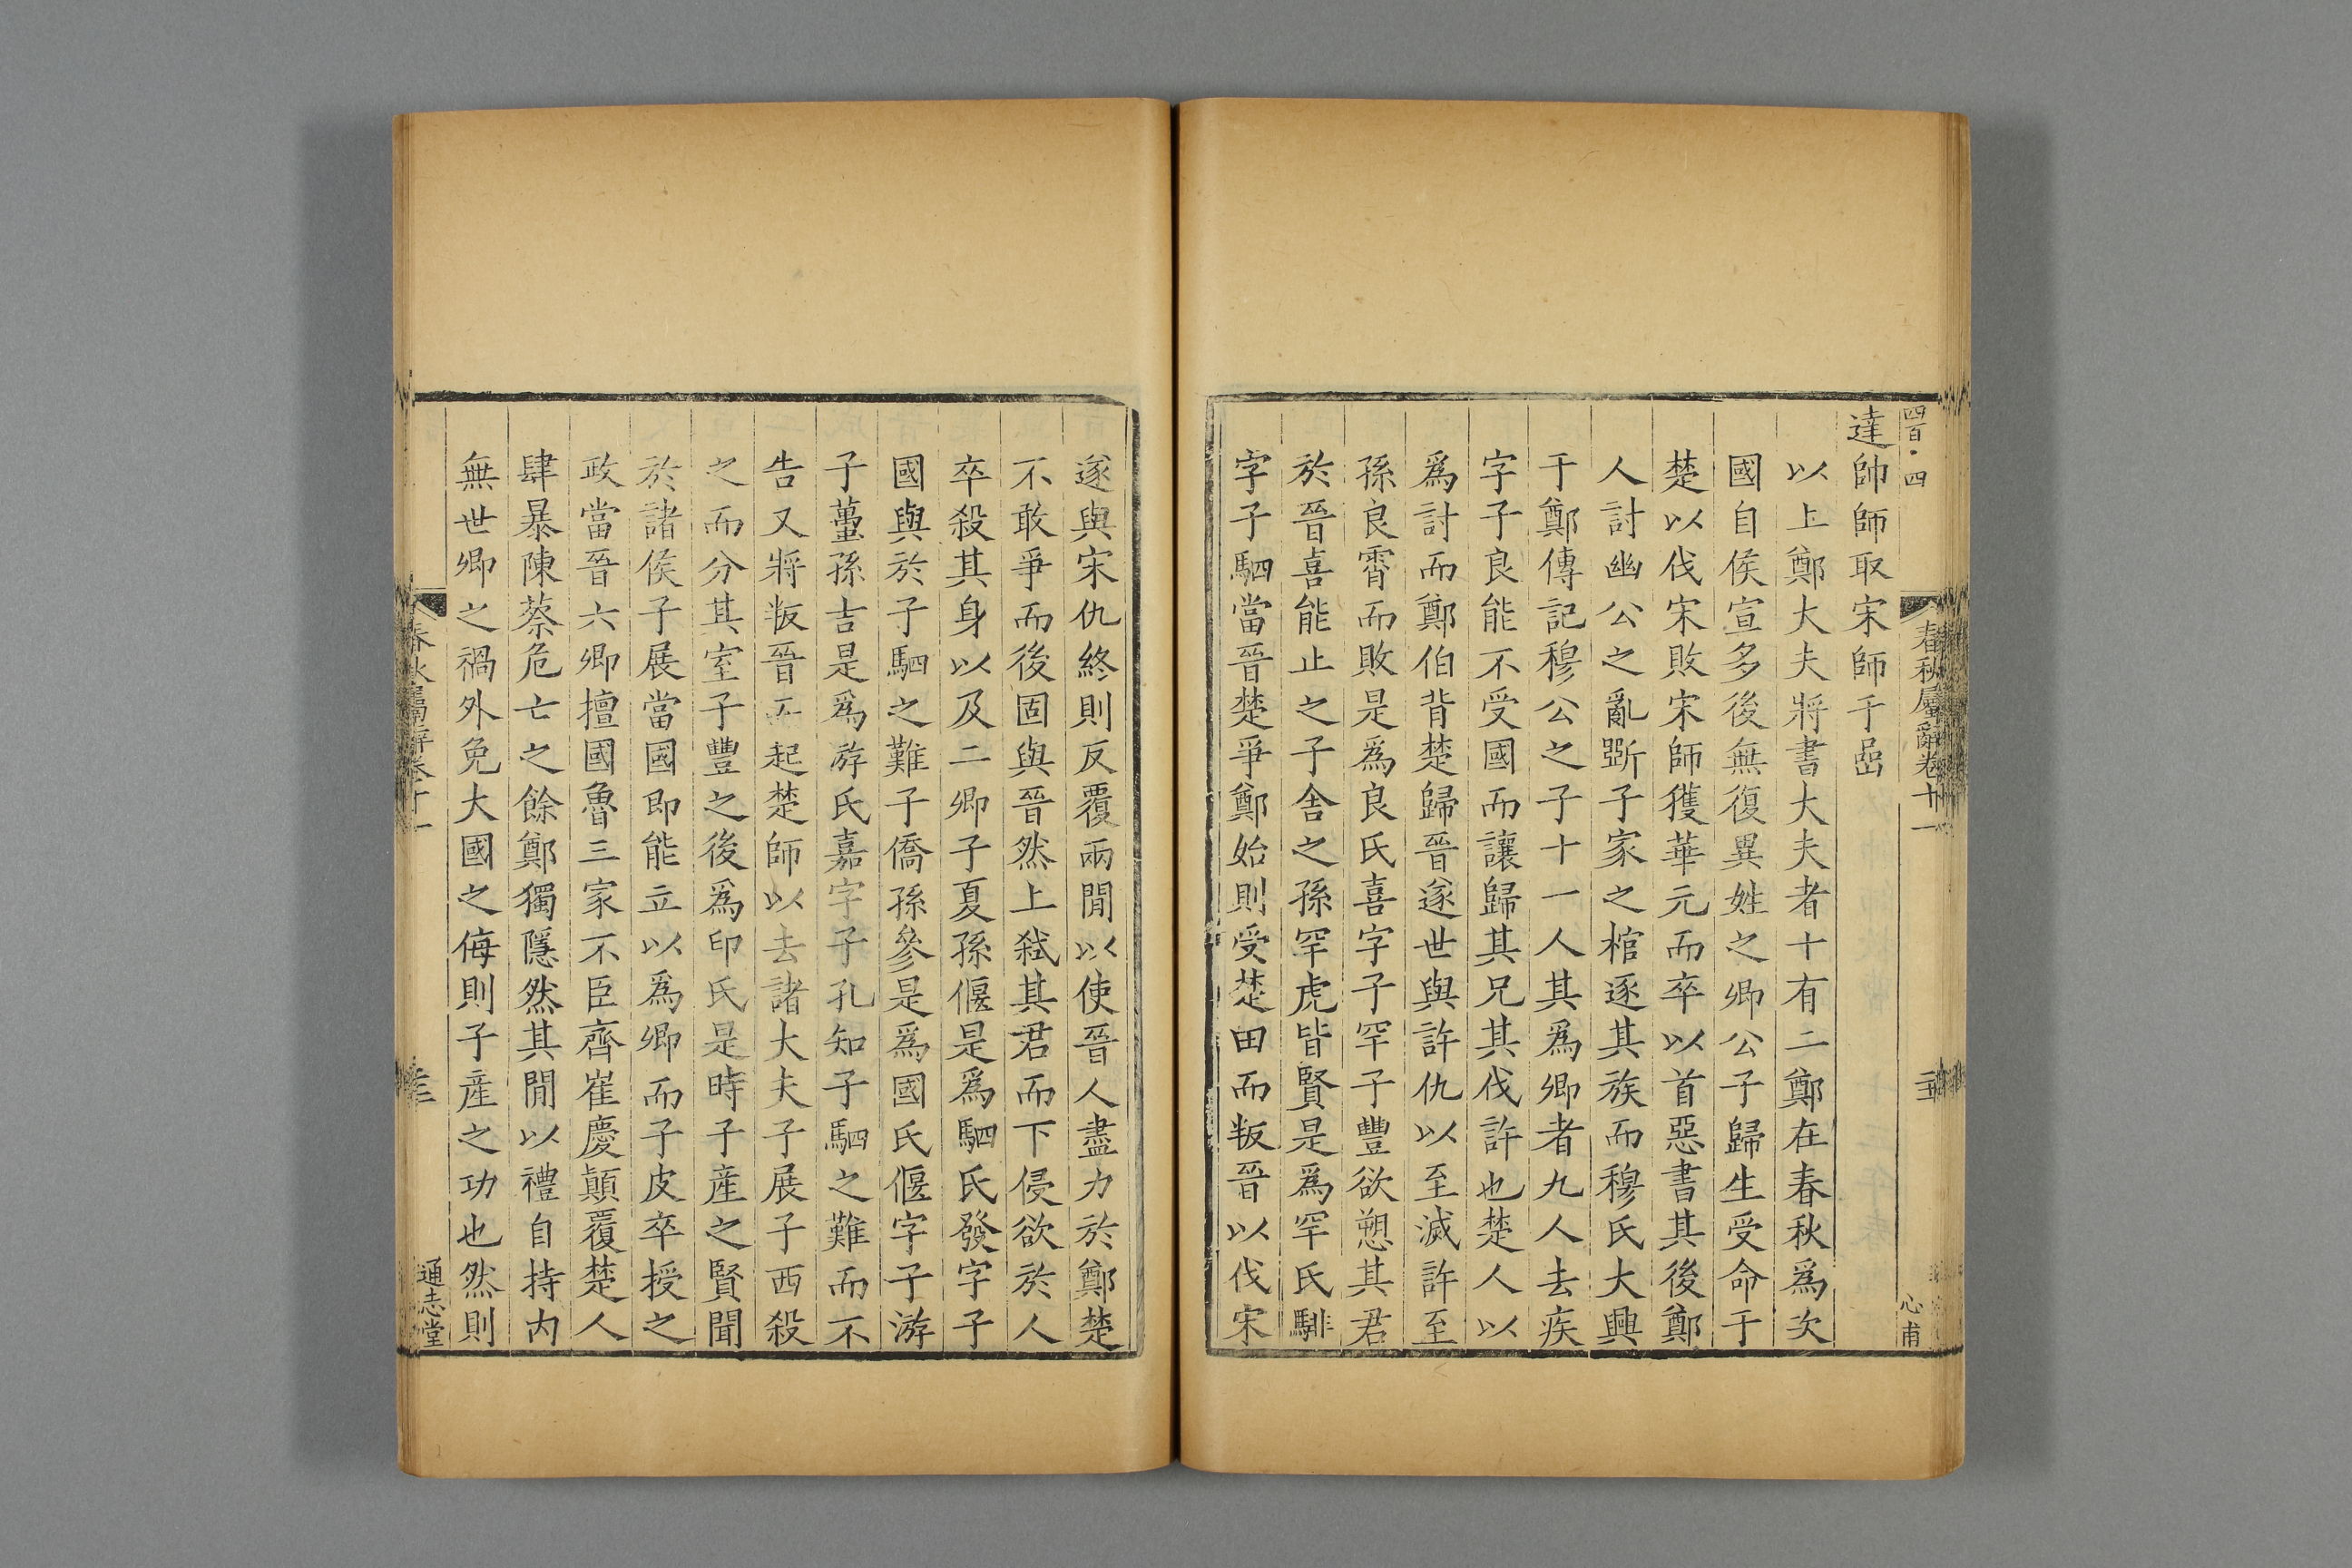 四百·四
春秋屬辭卷十一
心甫
達帥師取宋師于嵒
以上鄭大夫將書大夫者十有二鄭在春秋爲次
國自侯宣多後無復異姓之卿公子歸生受命于
楚以伐宋敗宋師獲華元而卒以首惡書其後鄭
人討幽公之亂斲子家之棺逐其族而穆氏大興
于鄭傳記穆公之子十一人其爲卿者九人去疾
字子良能不受國而讓歸其兄其伐許也楚人以
爲討而鄭伯背楚歸晉遂世與許仇以至滅許至
孫良霄而敗是爲良氏喜字子罕子豐欲愬其君
於晉喜能止之子舍之孫罕虎皆賢是爲罕氏騑
字子駟當晉楚爭鄭始則受楚田而叛晉以伐宋
遂與宋仇終則反覆兩閒以使晉人盡力於鄭楚
不敢爭而後固與晉然上弑其君而下侵欲於人
卒殺其身以及二卿子夏孫偃是爲駟氏發字子
國與於子駟之難子僑孫參是爲國氏偃字子游
子蠆孫吉是爲游氏嘉字子孔知子駟之難而不
告又將叛晉而起楚師以去諸大夫子展子西殺
之而分其室子豐之後爲印氏是時子產之賢聞
於諸侯子展當國即能立以爲卿而子皮卒授之
政當晉六卿擅國魯三家不臣齊崔慶顛覆楚人
肆暴陳蔡危亡之餘鄭獨隱然其閒以禮自持内
無世卿之禍外免大國之侮則子產之功也然則
春秋屬辭卷十一
通志堂